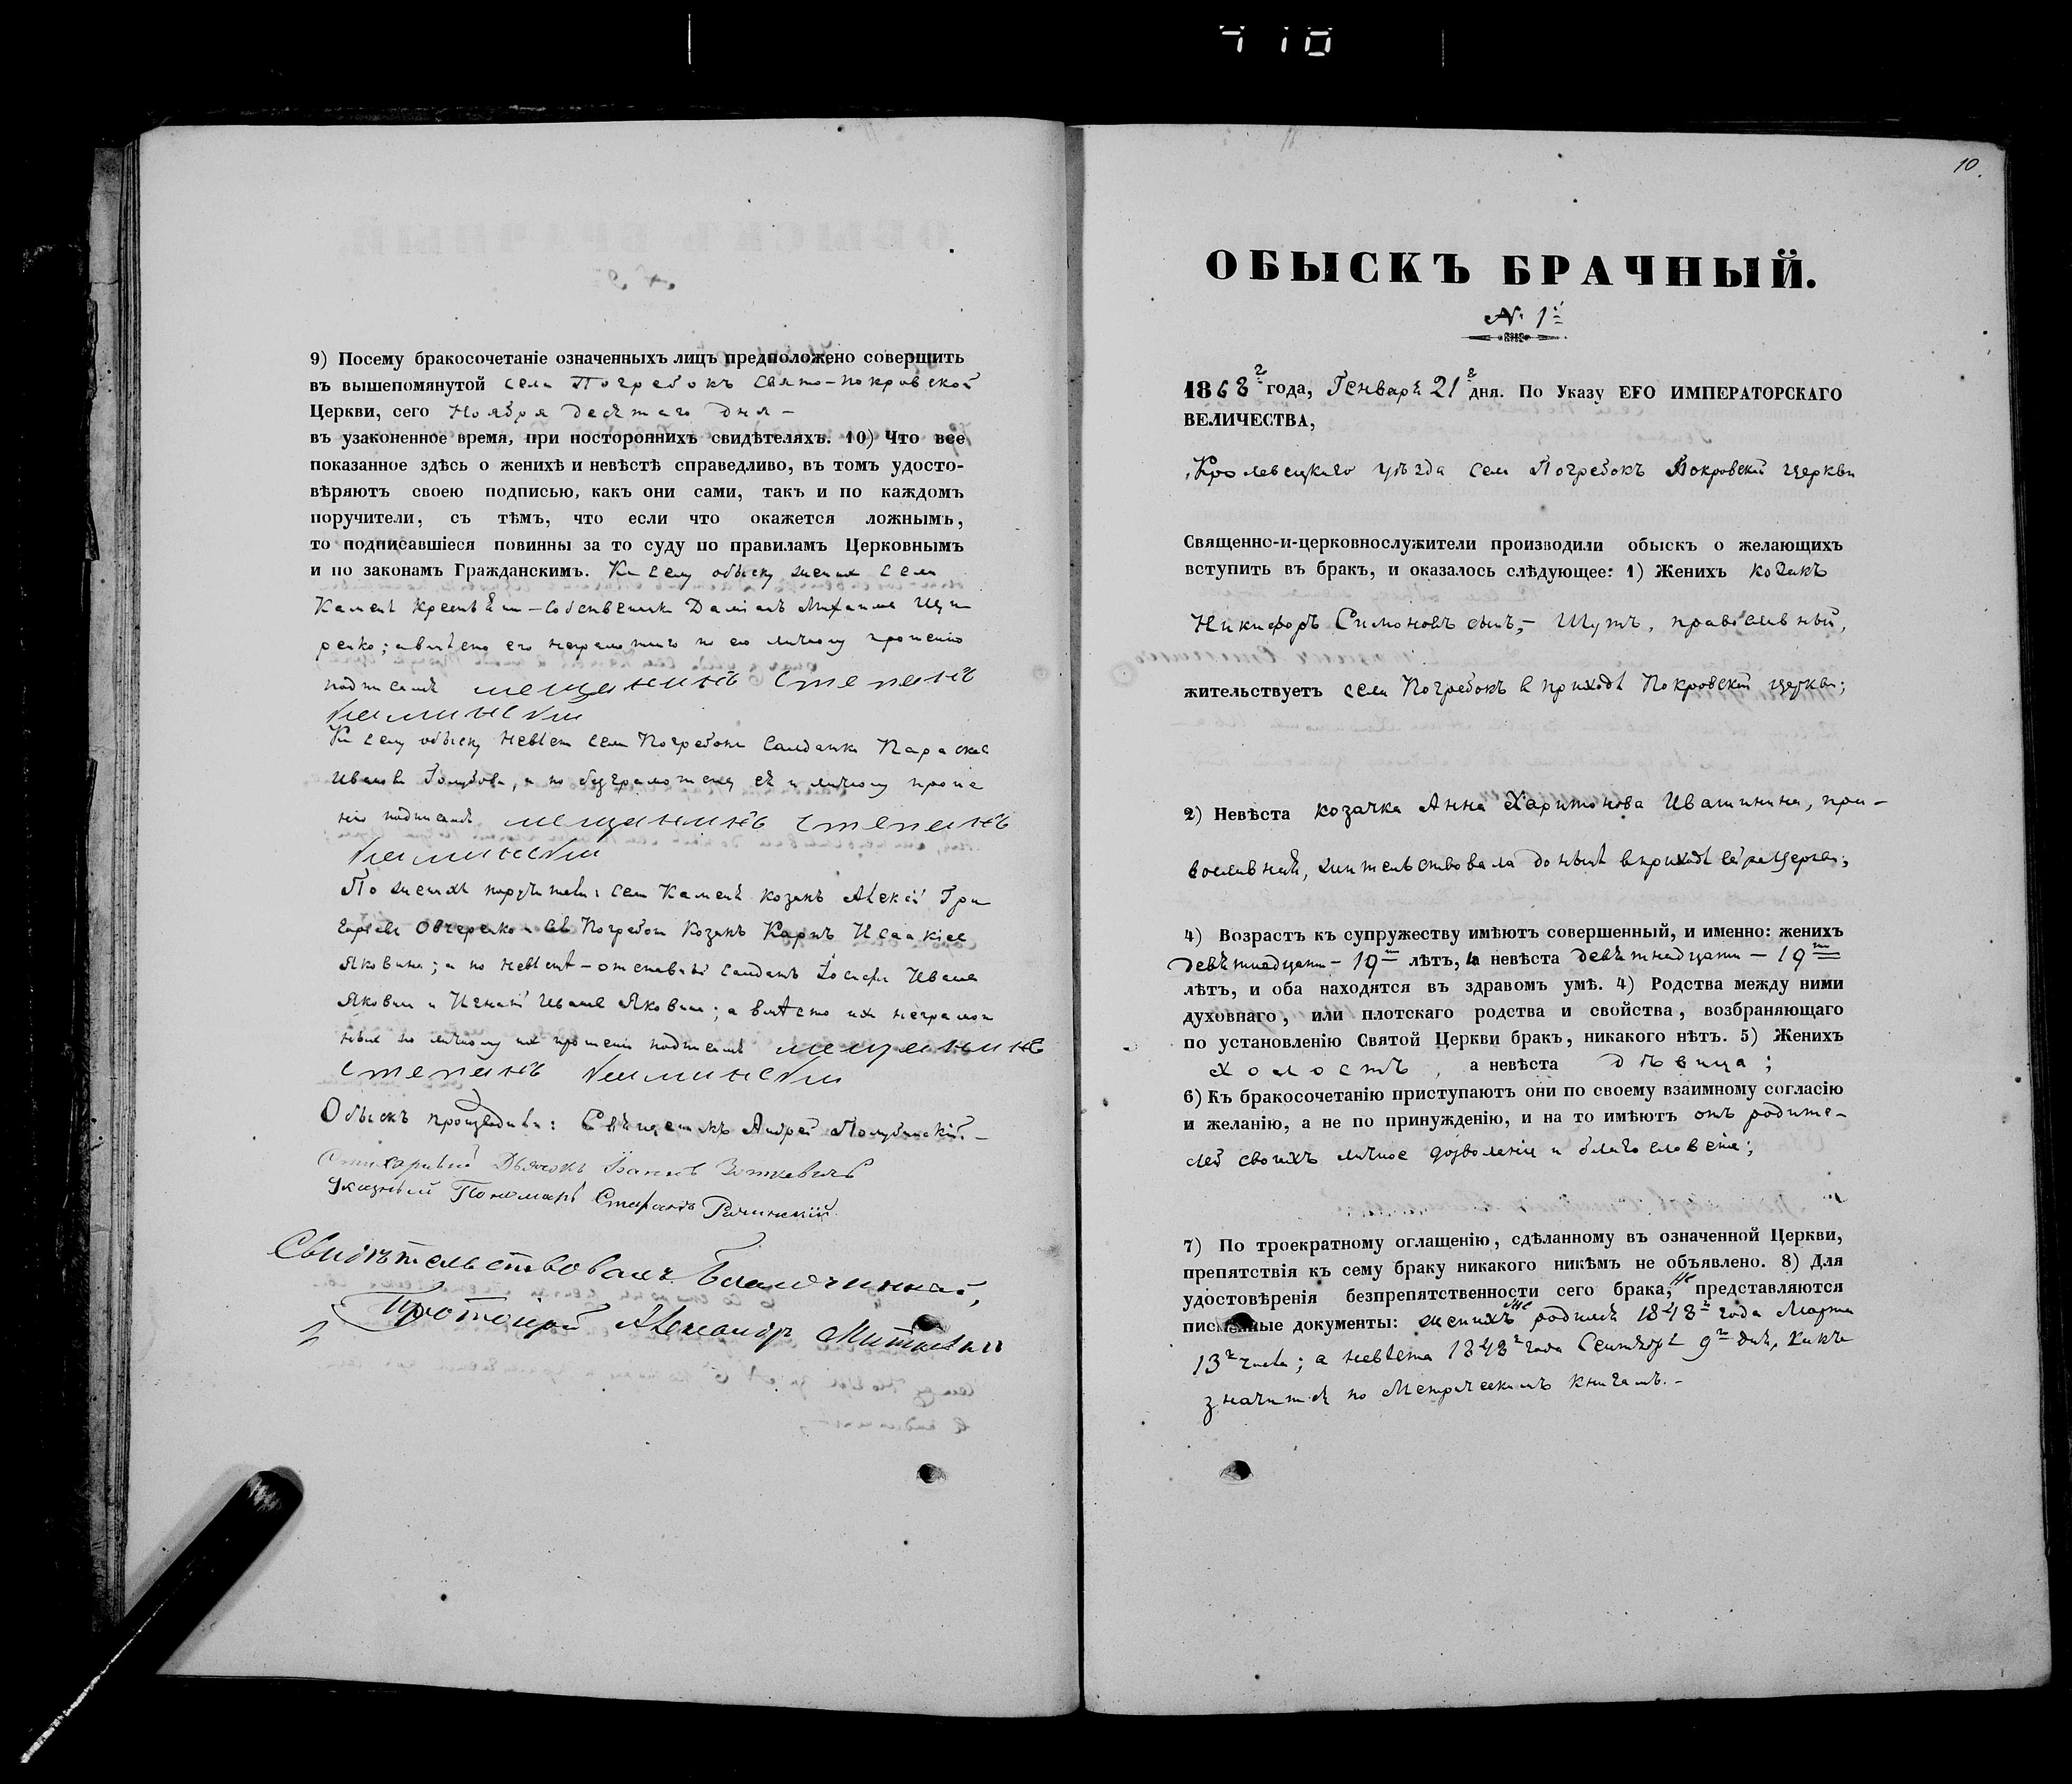 9) Посему бракосочетаніе означенныхъ лицъ предположено совершить
въ вышепомянутой села Погребокъ Свято-покровской
Церкви, сего Ноября десятаго дня –
въ узаконенное время, при постороннихъ свидѣтеляхъ. 10) Что все
показанное здѣсь о женихѣ и невѣстѣ справедливо, въ томъ удосто-
вѣряютъ своею подписью, какъ они сами, такъ и по каждомъ
поручители, съ тѣмъ, что если что окажется ложнымъ,
то подписавшіеся повинны за то суду по правиламъ Церковнымъ
и по законамъ Гражданскимъ. К сему обыску жених села
Каменя Даміанъ
его по его личному прошенію
подписалъ мещанинъ Степанъ
К сему обыску невѣста села Погребокъ Салдатка
Иванова а по личному проше
нію подписалъ мещанинъ Степанъ
По женихѣ поручители: села Каменя козакъ Алексій Гри
Погребокъ Козакъ Карпъ
а по невѣстѣ – отставный салдатъ Іосифъ
и Игнатій а вмѣсто их неграмот
ныхъ по личному их прошенію подписалъ мещанинъ
Степанъ
Обыскъ производили: Священникъ Андрей
Стихарный Дьячокъ
Указный Пономарь Стефанъ
Свидѣтельствовалъ Благочинный,
Протоіерей Александръ
10.
ОБЫСКЪ БРАЧНЫЙ.
№ 1й
1868г года, Генваря 21г дня. По Указу ЕГО ИМПЕРАТОРСКАГО
ВЕЛИЧЕСТВА,
Кролевецкаго уѣзда села Погребокъ Покровской церкви
Священно-и-церковнослужители производили обыскъ о желающихъ
вступить въ бракъ, и оказалось слѣдующее: 1) Женихъ козакъ
Никифоръ Симоновъ сынъ, – Шутъ, православный,
жительствуетъ села Погребокъ в приходѣ Покровской церкви;
2) Невѣста козачка Анна Харитонова Ивашинина, пра-
вославная, жительствовала донынѣ в приходѣ сей же церкви;
4) Возрастъ къ супружеству имѣютъ совершенный, и именно: женихъ
девятнадцать – 19ть лѣтъ, а невѣста девятнадцать – 19ть
лѣтъ, и оба находятся въ здравомъ умѣ. 4) Родства между ними
духовнаго, или плотскаго родства и свойства, возбраняющаго
по установленію Святой Церкви бракъ, никакого нѣтъ. 5) Женихъ
холостъ, а невѣста дѣвица;
6) Къ бракосочетанію приступаютъ они по своему взаимному согласію
и желанію, а не по принужденію, и на то имѣютъ отъ родите-
лей своихъ личное дозволеніе и благословеніе;
7) По троекратному оглашенію, сдѣланному въ означенной Церкви,
препятствія къ сему браку никакого никѣмъ не объявлено. 8) Для
удостовѣренія безпрепятственности сего брака, не представляются
письменные документы: женихъ же родился 1848г года Марта
13г числа; а невѣста 1848г года Сентября 9г дня, какъ
значится по Метрическимъ книгамъ. –